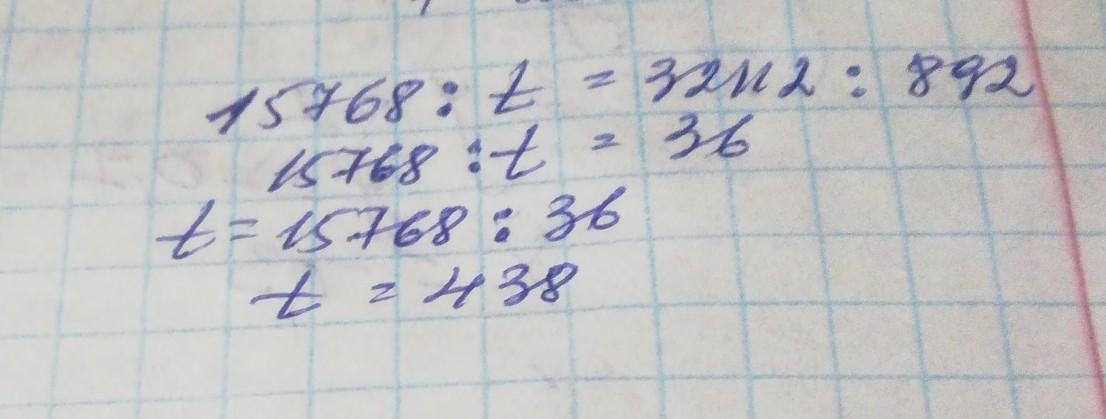 15768 : t = 32112 : 892
15768 : t = 36
t = 15768 : 36
t = 438